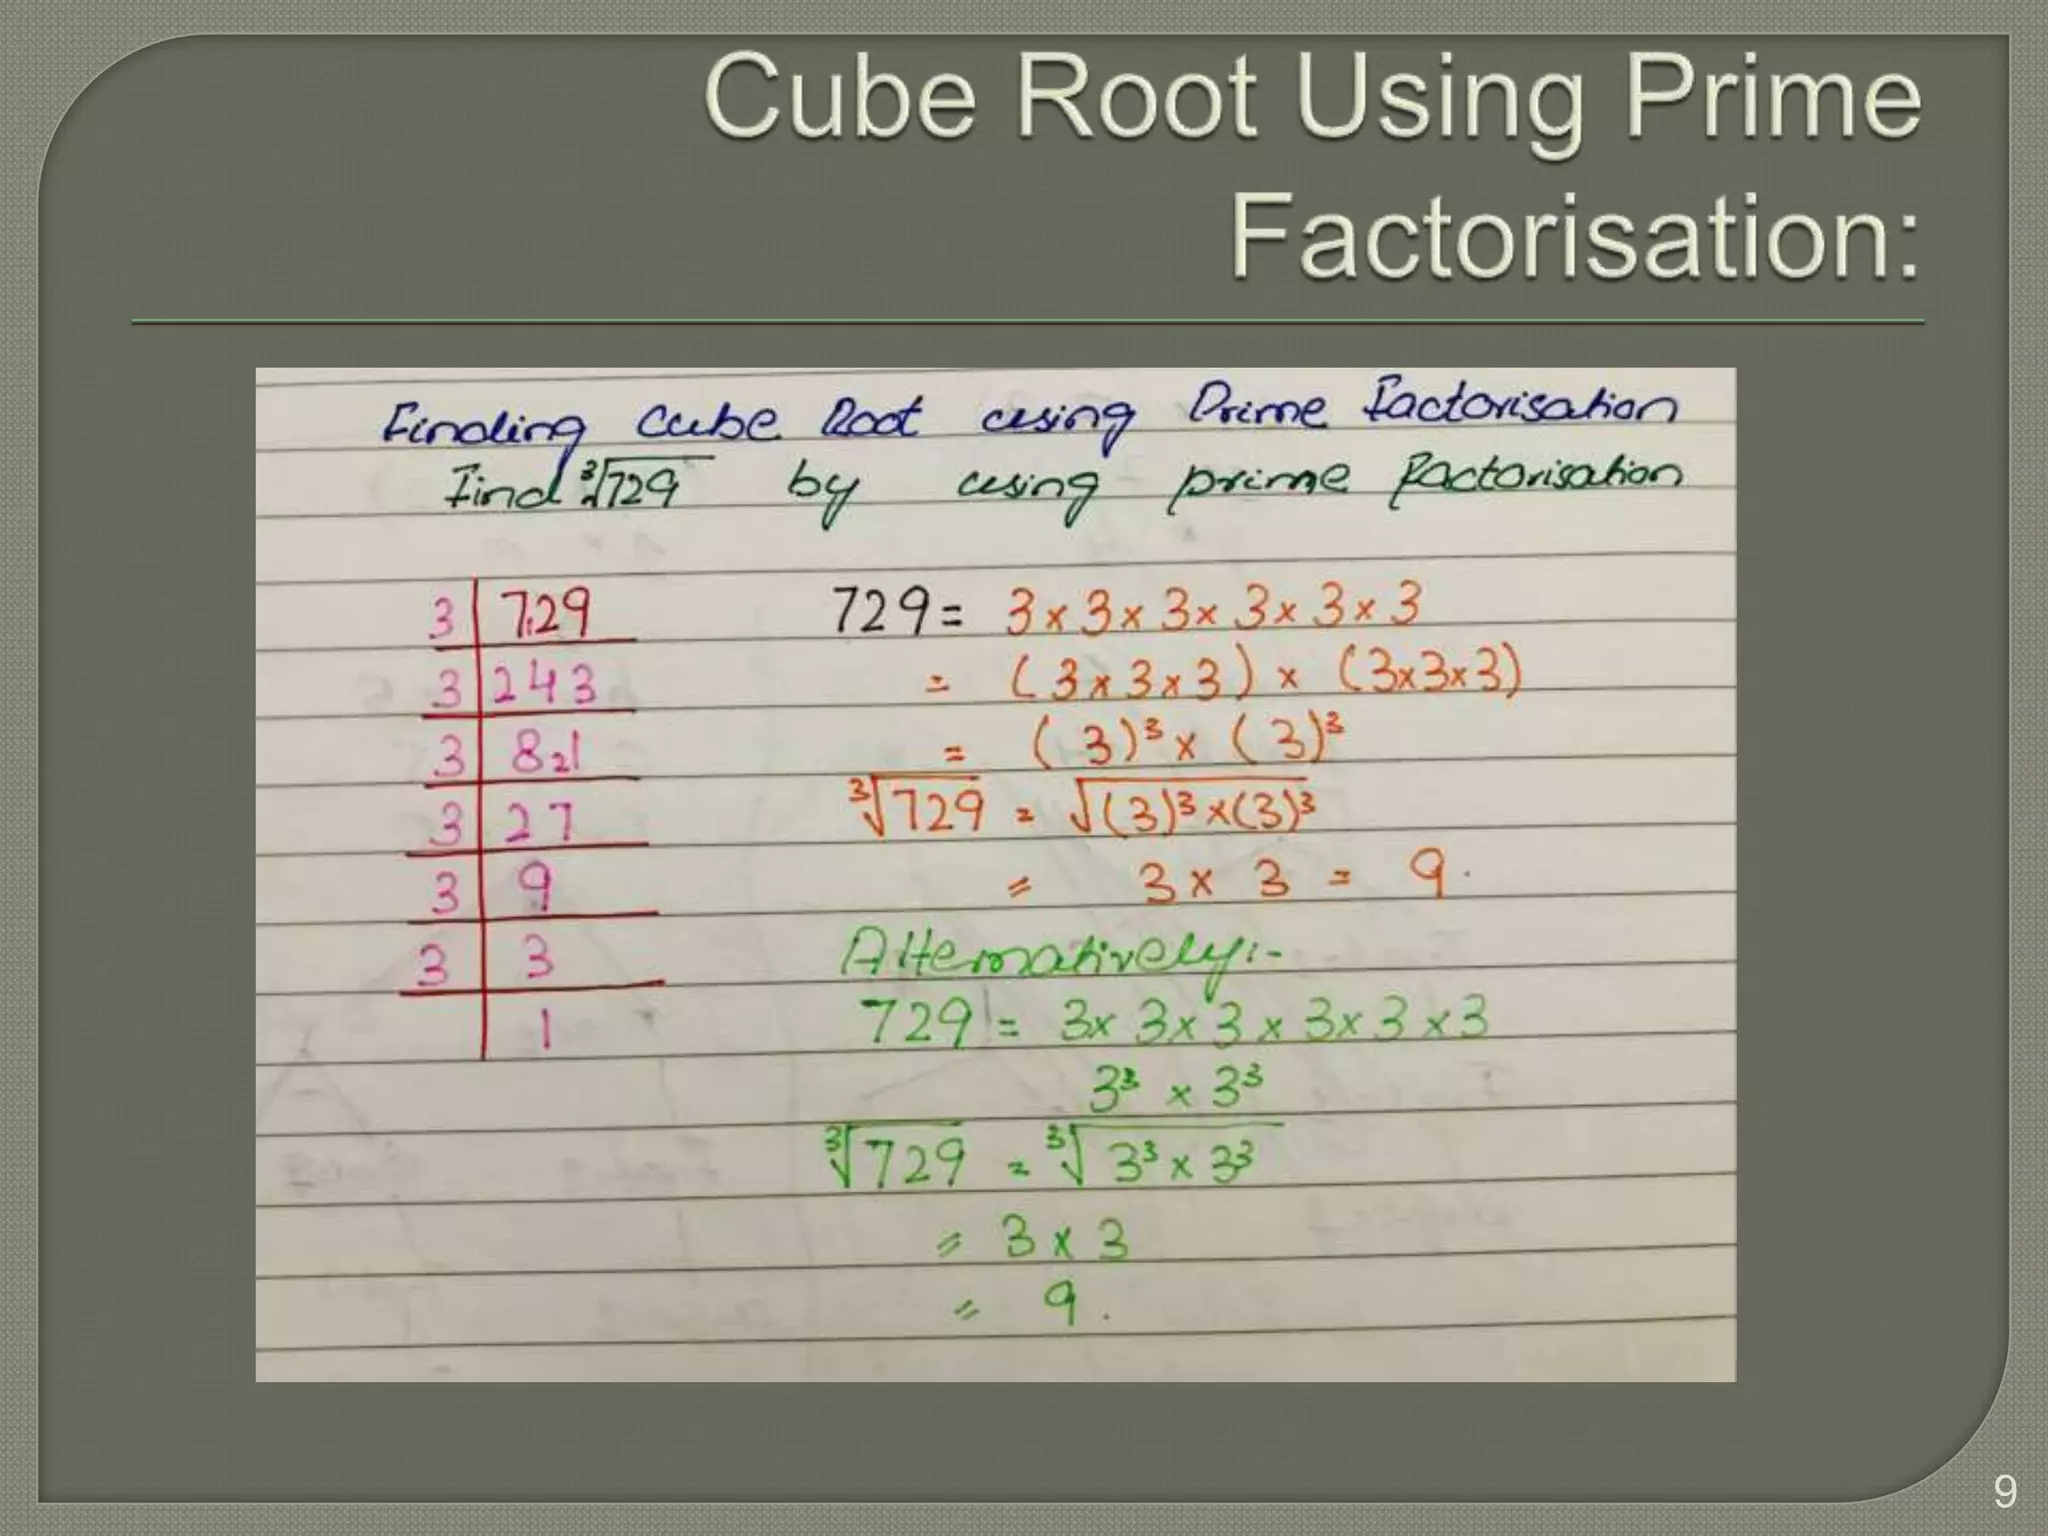 Cube Root Using Prime
Factorisation:
Finding Cube Root using Prime Factorisation
Find ∛729 by using prime factorisation
3 | 729
3 | 243
3 | 81
3 | 27
3 | 9
3 | 3
1
729 = 3 × 3 × 3 × 3 × 3 × 3
= (3 × 3 × 3) × (3×3×3)
= (3)³ × (3)³
∛729 = √(3)³×(3)³
= 3 × 3 = 9.
Alternatively:-
729 = 3× 3× 3 × 3× 3 ×3
3³ × 3³
∛729 = ∛3³ × 3³
= 3 × 3
= 9.
9